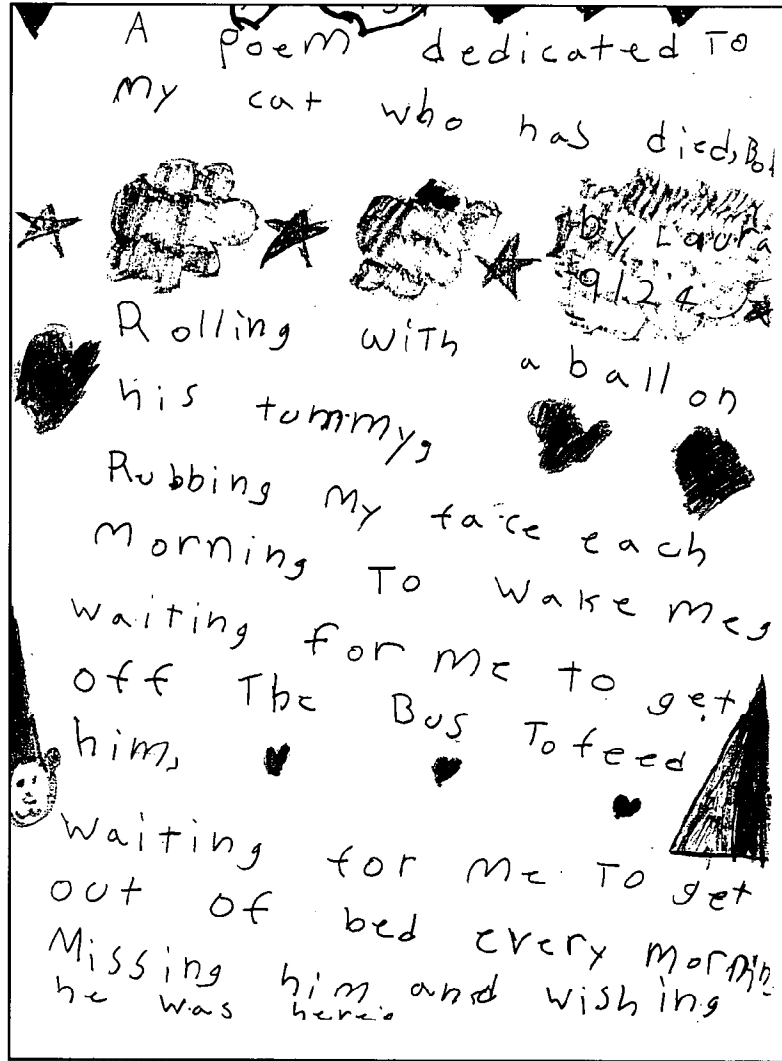 A poem dedicated To
My cat who has died,
by Laura
9/24
Rolling with a ball on
his tummy,
Rubbing my face each
Morning To wake me,
waiting for me to get
off The Bus To feed
him,
Waiting for me To get
out of bed every mornin
Missing him and wishing
he was here.